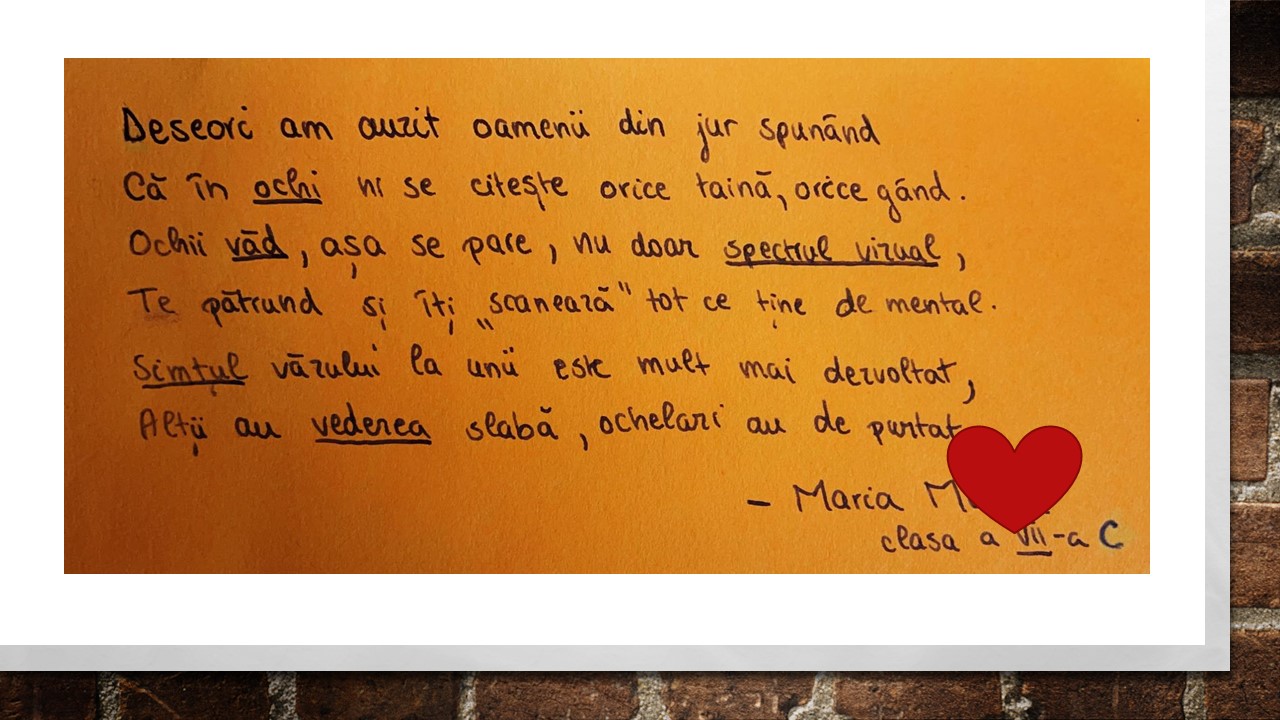 Deseori am auzit oamenii din jur spunând
Că în ochi ni se citește orice taină, orice gând.
Ochii văd, așa se pare, nu doar spectrul vizual,
Te pătrund și îți „scanează" tot ce ține de mental.
Simțul văzului la unii este mult mai dezvoltat,
Alții au vederea slabă, ochelari au de purtat
- Maria
clasa a VII-a C